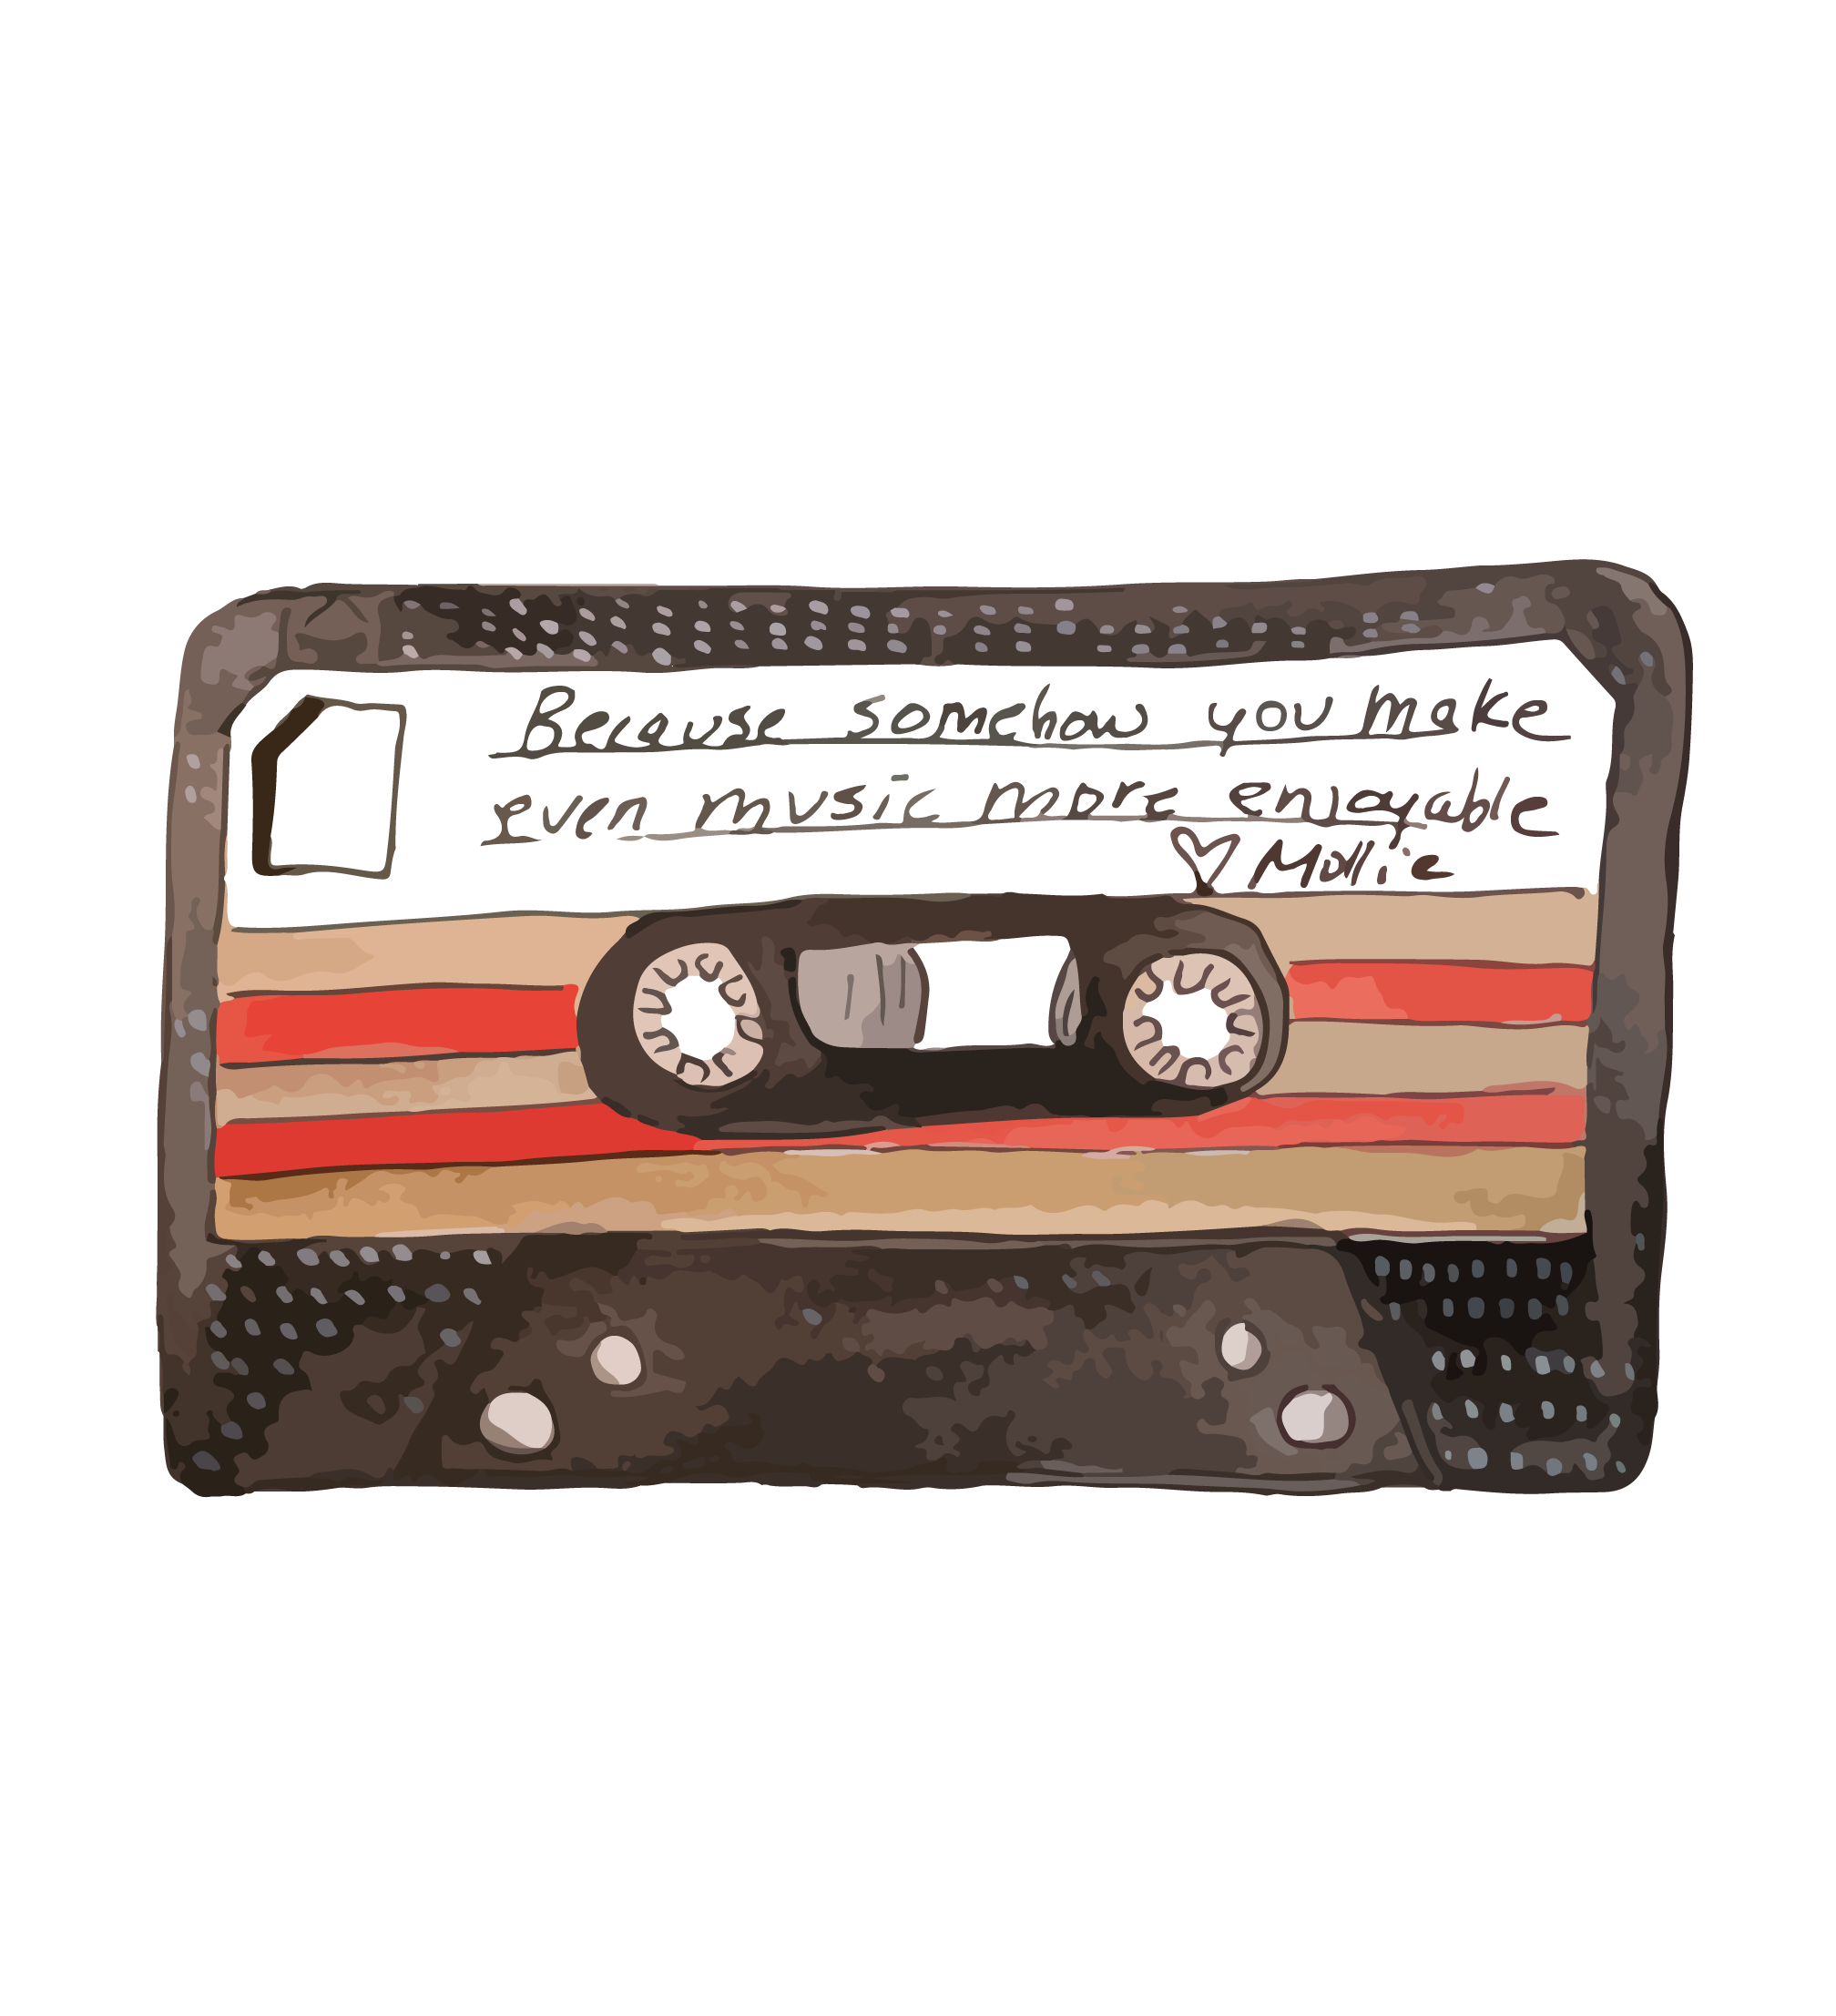 Because somehow you make
even music more enjoyable
♡ Mollie